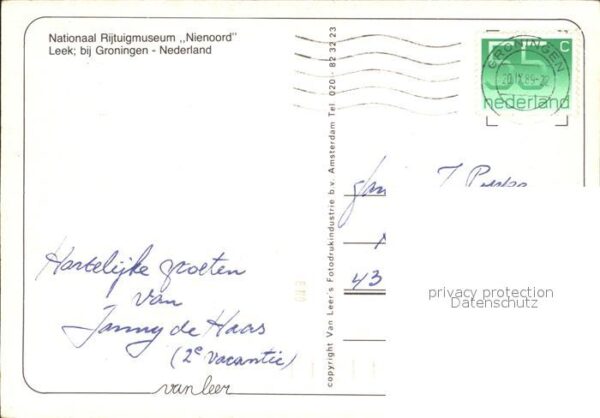 Nationaal Rijtuigmuseum „Nienoord”
Leek; bij Groningen - Nederland
Hartelijke groeten
van
Janny de Haas
(2e vacantie)
van leer
copyright Van Leer's Fotodrukindustrie b.v. Amsterdam Tel. 020 - 82 32 23
GRONINGEN
C
nederland
43
privacy protection
Datenschutz